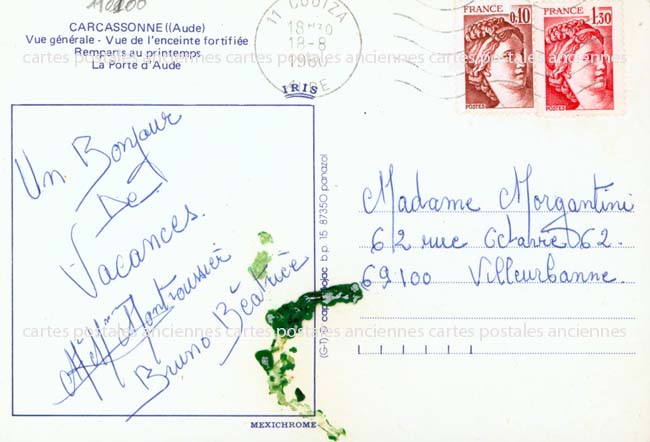 110100
CARCASSONNE (Aude)
Vue générale - Vue de l'enceinte fortifiée
Remparts au printemps
La Porte d'Aude
11 COUIZA
18H30
18-8
1980
AUDE
FRANCE
0,10
POSTES
FRANCE
1,30
POSTES
IRIS
Un Bonjour
De
Vacances.
Mr et Mme Montroussier
Bruno Béatrice
b.p. 15 87350 panazol
Madame Morgantini
62 rue Octavie
69100 Villeurbanne.
cartes postales anciennes cartes postales anciennes cartes postales anciennes
cartes postales anciennes cartes postales anciennes cartes postales anciennes
MEXICHROME